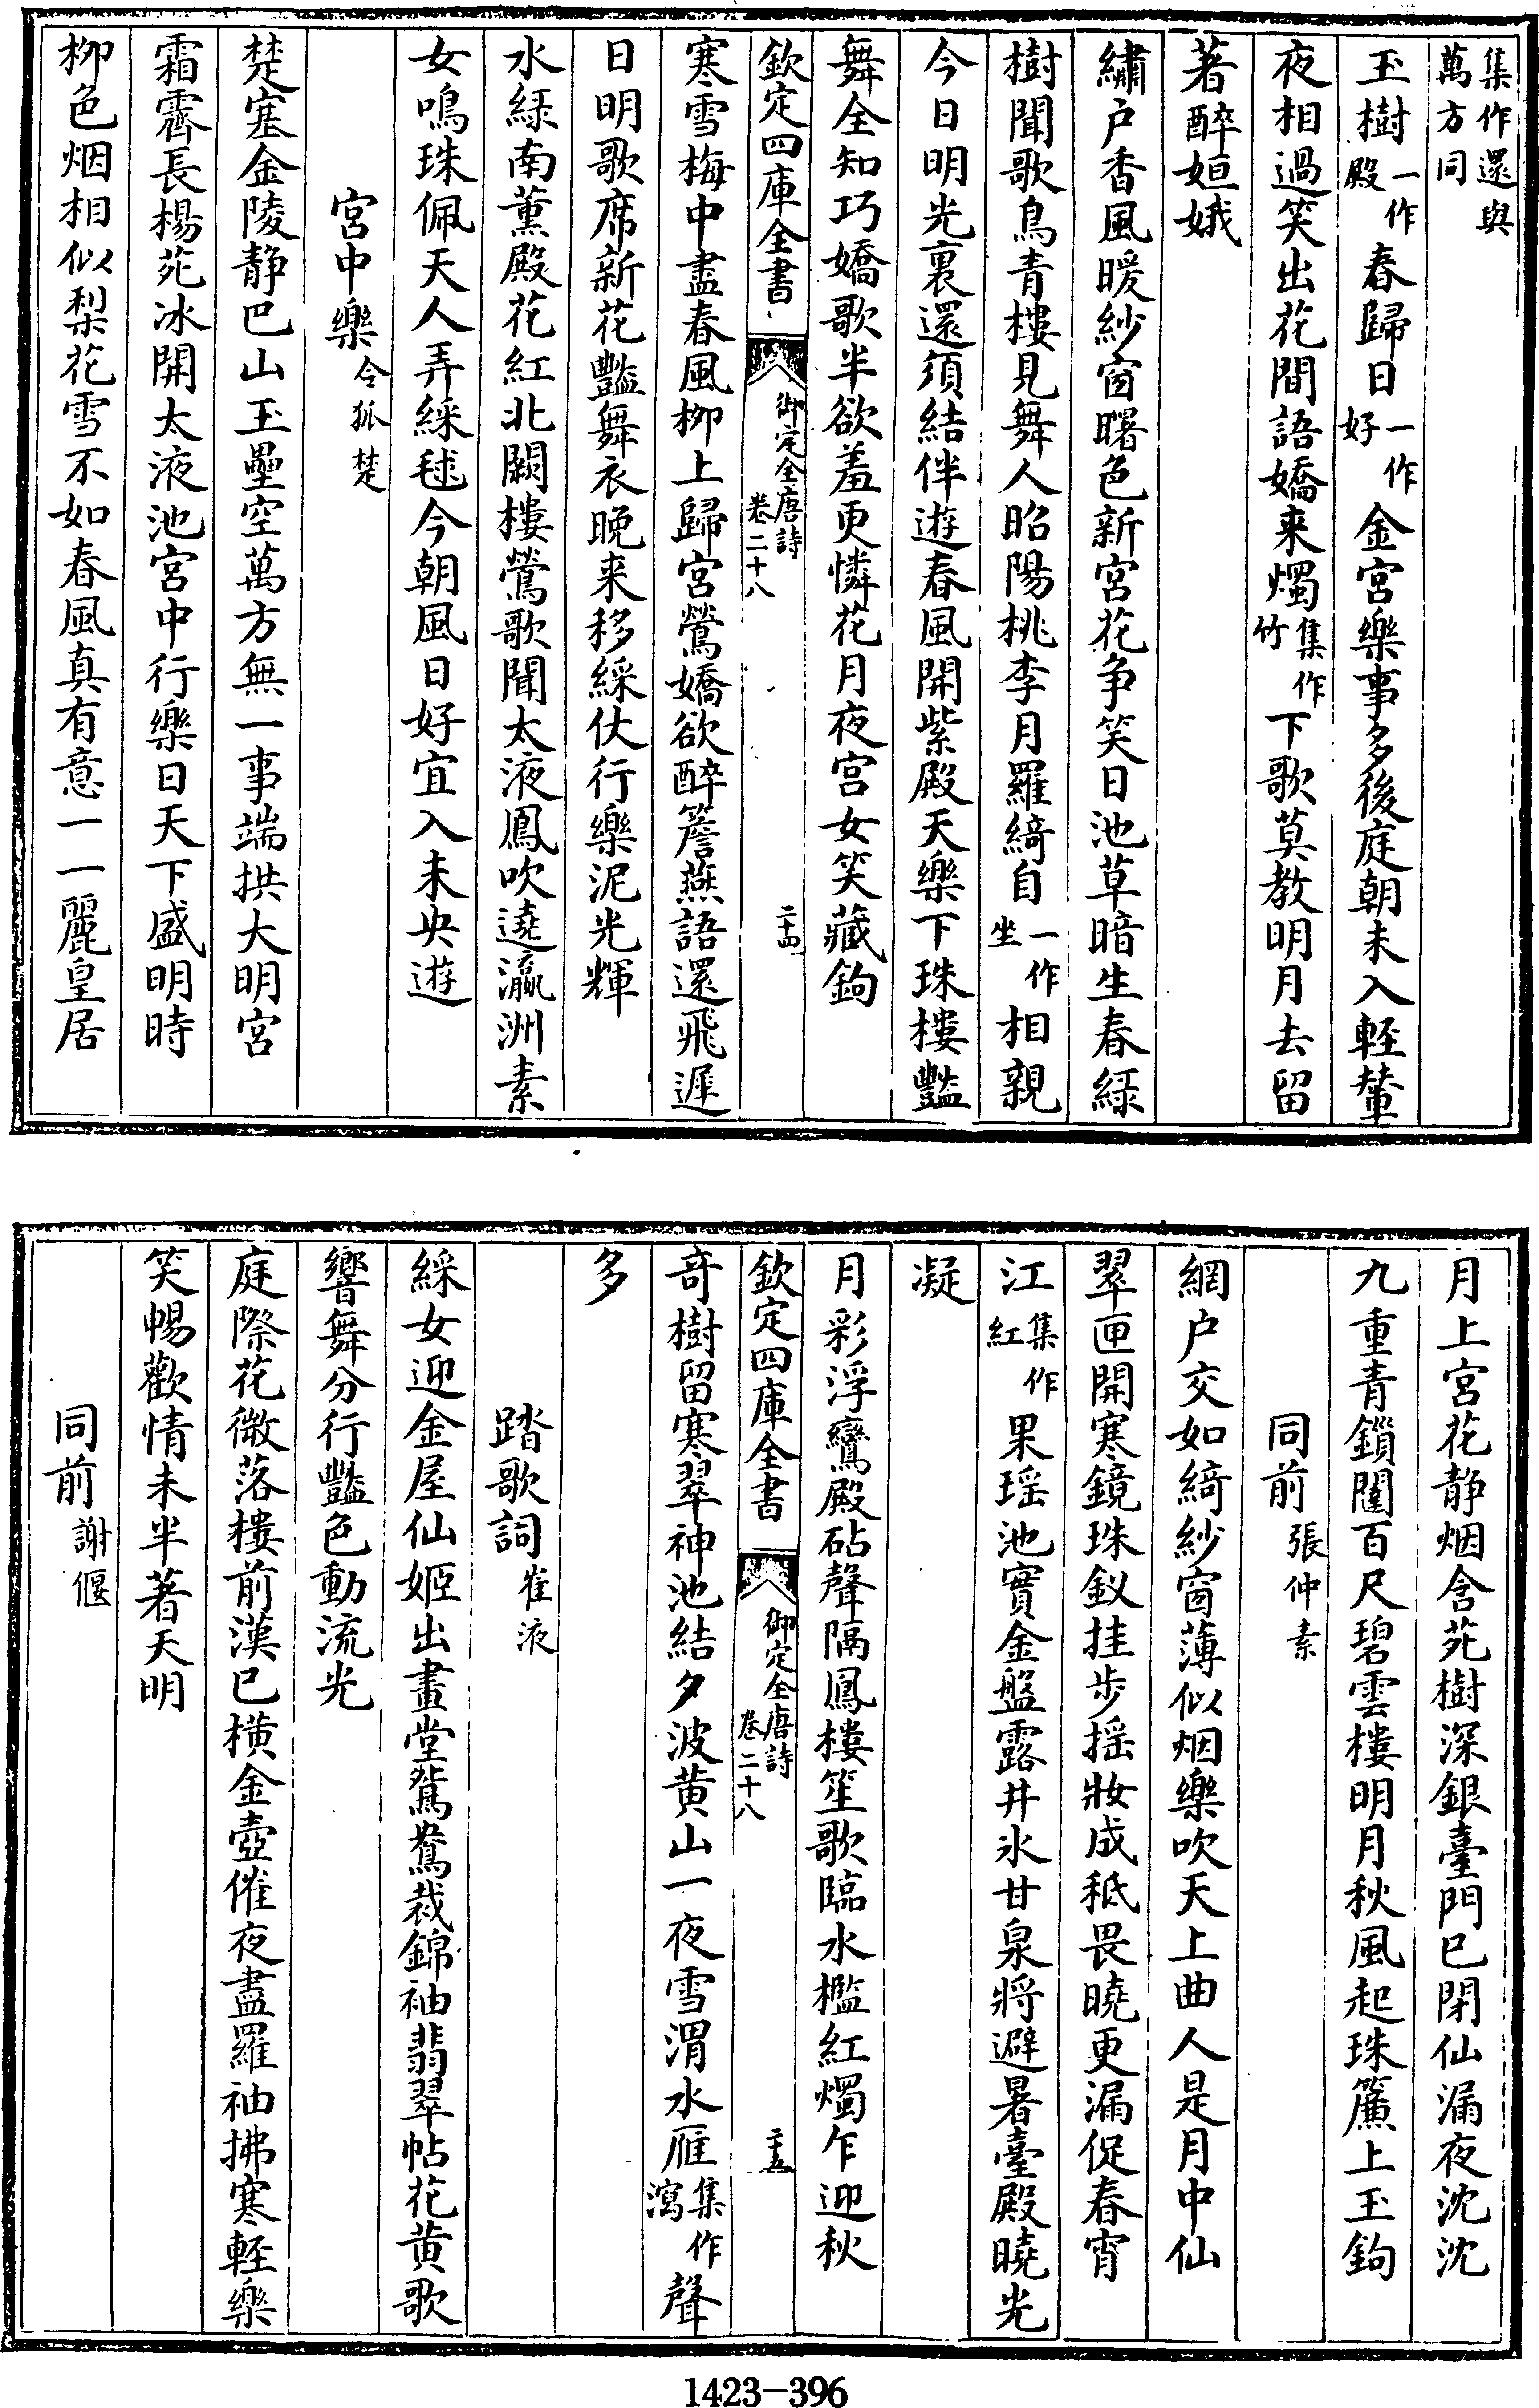 集作還與萬方同
玉樹一作殿春歸日一作好金宮樂事多後庭朝未入輕輦
夜相過笑出花間語嬌来燭集作竹下歌莫教明月去留
著醉姮娥
繡户香風暖紗窗曙色新宮花争笑日池草暗生春綠
樹聞歌鳥青樓見舞人昭陽桃李月羅綺自一作坐相親
今日明光裏還須結伴遊春風開紫殿天樂下珠樓豔
舞全知巧嬌歌半欲羞更憐花月夜宮女笑藏鉤
欽定四庫全書 御定全唐詩卷二十八 二十四
寒雪梅中盡春風柳上歸宮鶯嬌欲醉簷燕語還飛遲
日明歌席新花豔舞衣晚来移綵仗行樂泥光輝
水綠南薰殿花紅北闕樓鶯歌聞太液鳳吹遶瀛洲素
女鳴珠佩天人弄綵毬今朝風日好宜入未央遊
宮中樂令狐楚
楚塞金陵静巴山玉壘空萬方無一事端拱大明宮
霜霽長楊苑冰開太液池宮中行樂日天下盛明時
柳色烟相似梨花雪不如春風真有意一一麗皇居
月上宮花静烟含苑樹深銀臺門已閉仙漏夜沈沈
九重青鎖闥百尺碧雲樓明月秋風起珠簾上玉鉤
同前張仲素
網户交如綺紗窗薄似烟樂吹天上曲人是月中仙
翠匣開寒鏡珠釵挂步摇妝成秪畏曉更漏促春宵
江集作紅果瑶池實金盤露井氷甘泉將避暑臺殿曉光
凝
月彩浮鸞殿砧聲隔鳳樓笙歌臨水檻紅燭乍迎秋
欽定四庫全書 御定全唐詩卷二十八 二十五
奇樹留寒翠神池結夕波黄山一夜雪渭水雁集作瀉聲
多
踏歌詞崔液
綵女迎金屋仙姬出畫堂鴛鴦裁錦袖翡翠帖花黄歌
響舞分行豔色動流光
庭際花微落樓前漢已橫金壺催夜盡羅袖拂寒輕樂
笑暢歡情未半著天明
同前謝偃
1423-396